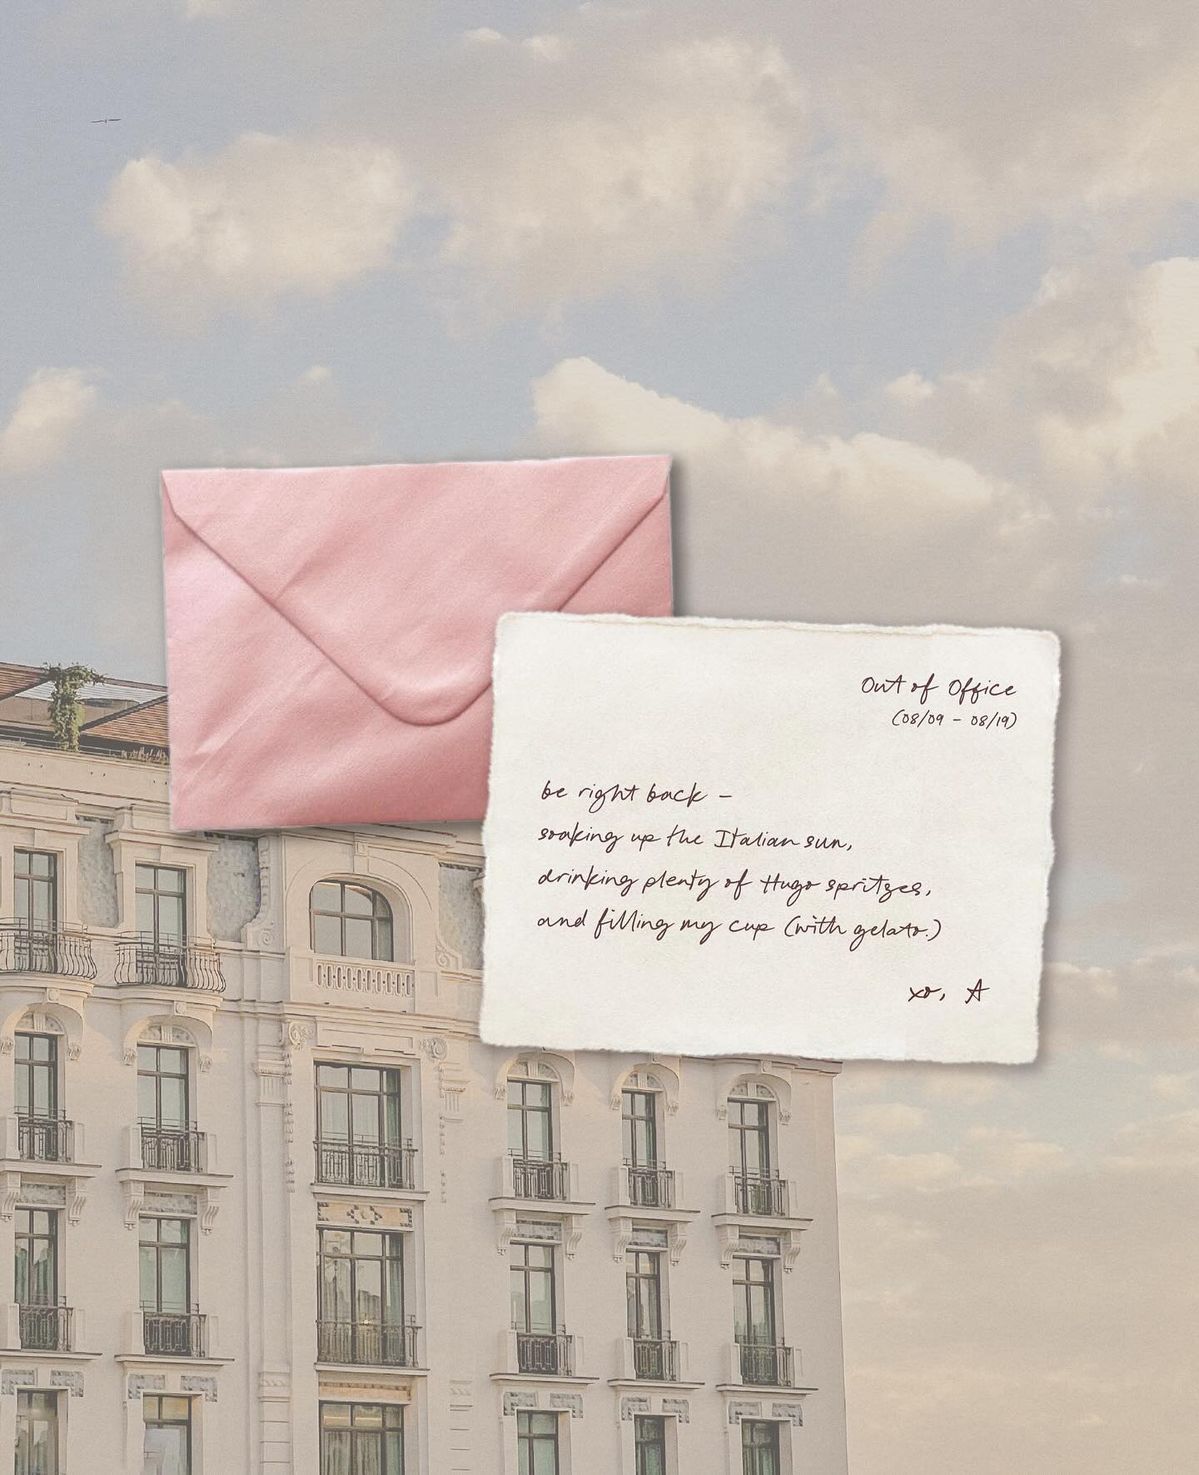 Out of Office
(08/09 - 08/19)
be right back –
soaking up the Italian sun,
drinking plenty of Hugo spritzes,
and filling my cup (with gelato.)
xo, A